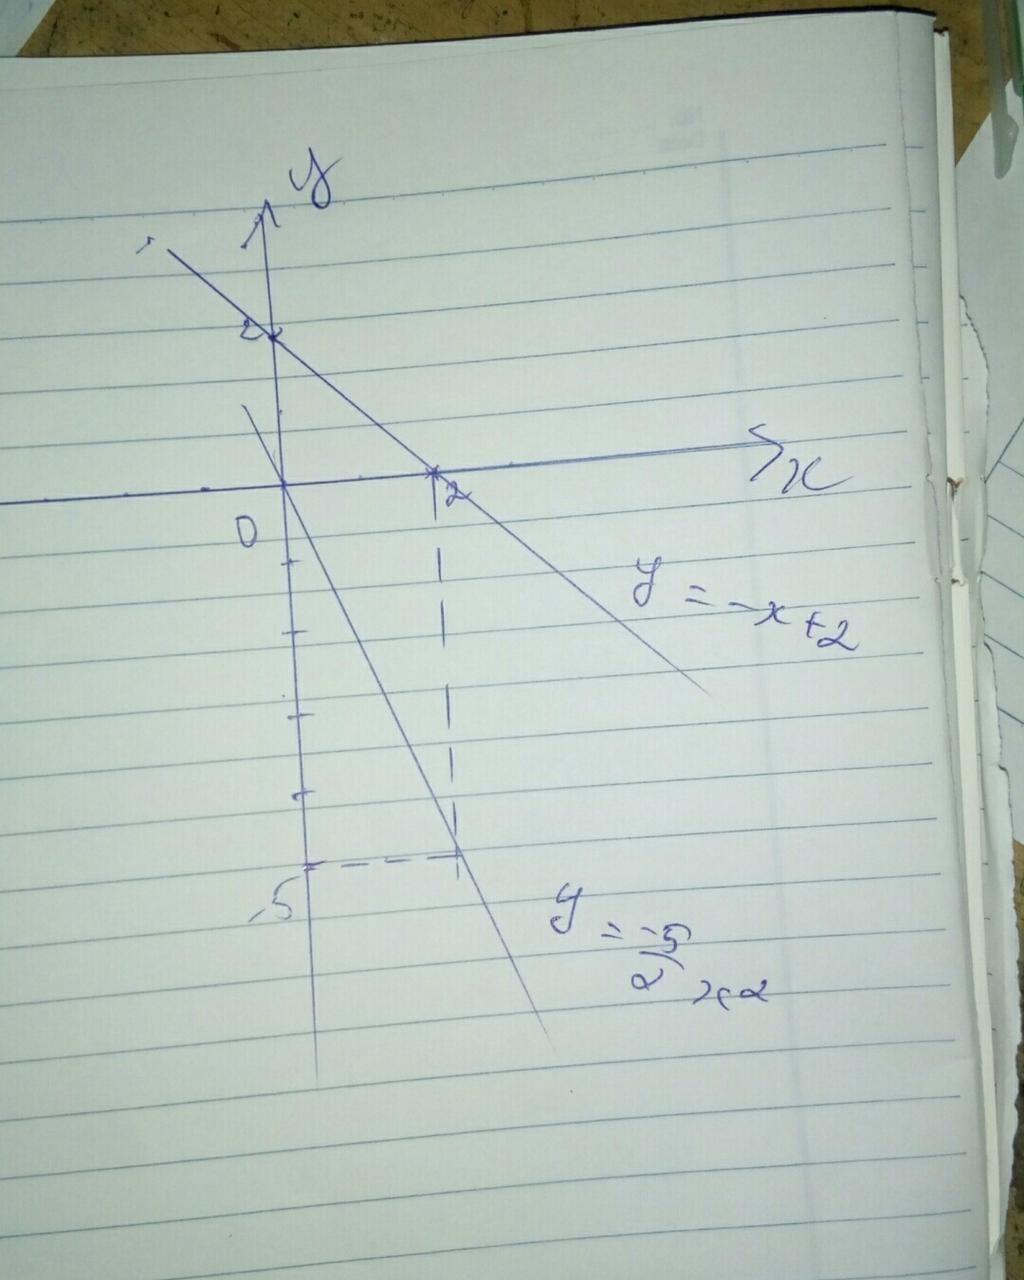 y
2
x
2
0
y = -x+2
-5
y = -5/2 x2